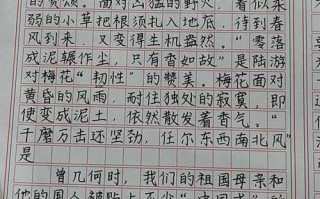 的赞颂。面对凶猛的野火，看似柔
弱的小草把根须扎入地底，待到春
风到来，又变得生机盎然。“零落
成泥辗作尘，只有香如故”是陆游
对梅花“韧性”的赞美。梅花面对
黄昏的风雨，耐住独处的寂寞，即
使变成泥土，依然散发着香气。“
千磨万击还坚劲，任尔东西南北风”
是
曾几何时，我们的祖国母亲和
他的国人被贴上不少“中国式”的